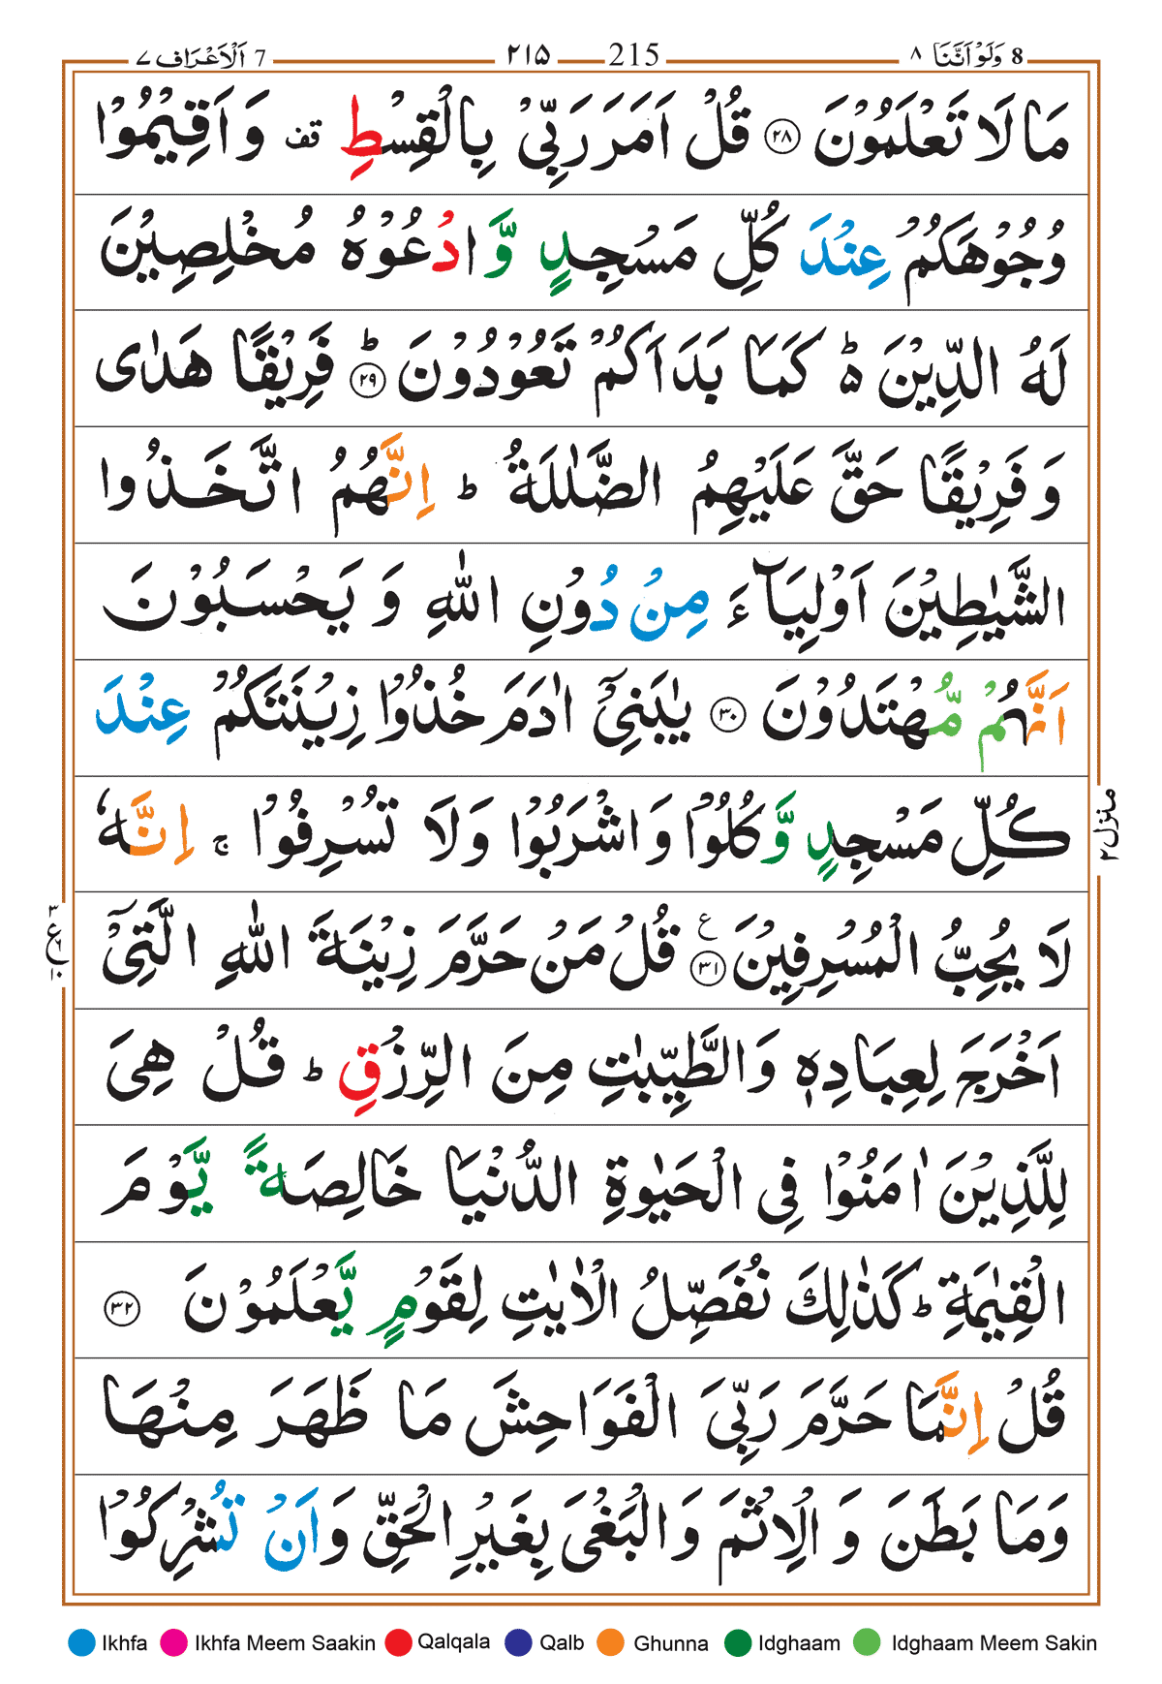 8 وَلَوْ اَنَّنَا ٨ 215 ٢١٥ 7 اَلْاَعْرَاف ٧
مَا لَا تَعْلَمُوْنَ ﴿٢٨﴾ قُلْ اَمَرَ رَبِّیْ بِالْقِسْطِ قف وَاَقِیْمُوْا
وُجُوْهَكُمْ عِنْدَ كُلِّ مَسْجِدٍ وَّادْعُوْهُ مُخْلِصِیْنَ
لَهُ الدِّیْنَ ؕ۬ كَمَا بَدَاَكُمْ تَعُوْدُوْنَ ؕ﴿٢٩﴾ فَرِیْقًا هَدٰی
وَ فَرِیْقًا حَقَّ عَلَیْهِمُ الضَّلٰلَةُ ؕ اِنَّهُمُ اتَّخَذُوا
الشَّیٰطِیْنَ اَوْلِیَآءَ مِنْ دُوْنِ اللّٰهِ وَ یَحْسَبُوْنَ
اَنَّهُمْ مُّهْتَدُوْنَ ﴿٣٠﴾ یٰبَنِیْۤ اٰدَمَ خُذُوْا زِیْنَتَكُمْ عِنْدَ
كُلِّ مَسْجِدٍ وَّ كُلُوْا وَ اشْرَبُوْا وَلَا تُسْرِفُوْا ۚ اِنَّهٗ
لَا یُحِبُّ الْمُسْرِفِیْنَ ﴿٣١﴾ ع قُلْ مَنْ حَرَّمَ زِیْنَةَ اللّٰهِ الَّتِیْۤ
اَخْرَجَ لِعِبَادِهٖ وَالطَّیِّبٰتِ مِنَ الرِّزْقِ ؕ قُلْ هِیَ
لِلَّذِیْنَ اٰمَنُوْا فِی الْحَیٰوةِ الدُّنْیَا خَالِصَةً یَّوْمَ
الْقِیٰمَةِ ؕ كَذٰلِكَ نُفَصِّلُ الْاٰیٰتِ لِقَوْمٍ یَّعْلَمُوْنَ ﴿٣٢﴾
قُلْ اِنَّمَا حَرَّمَ رَبِّیَ الْفَوَاحِشَ مَا ظَهَرَ مِنْهَا
وَمَا بَطَنَ وَ الْاِثْمَ وَالْبَغْیَ بِغَیْرِ الْحَقِّ وَ اَنْ تُشْرِكُوْا
منزل ٢
Ikhfa Ikhfa Meem Saakin Qalqala Qalb Ghunna Idghaam Idghaam Meem Sakin